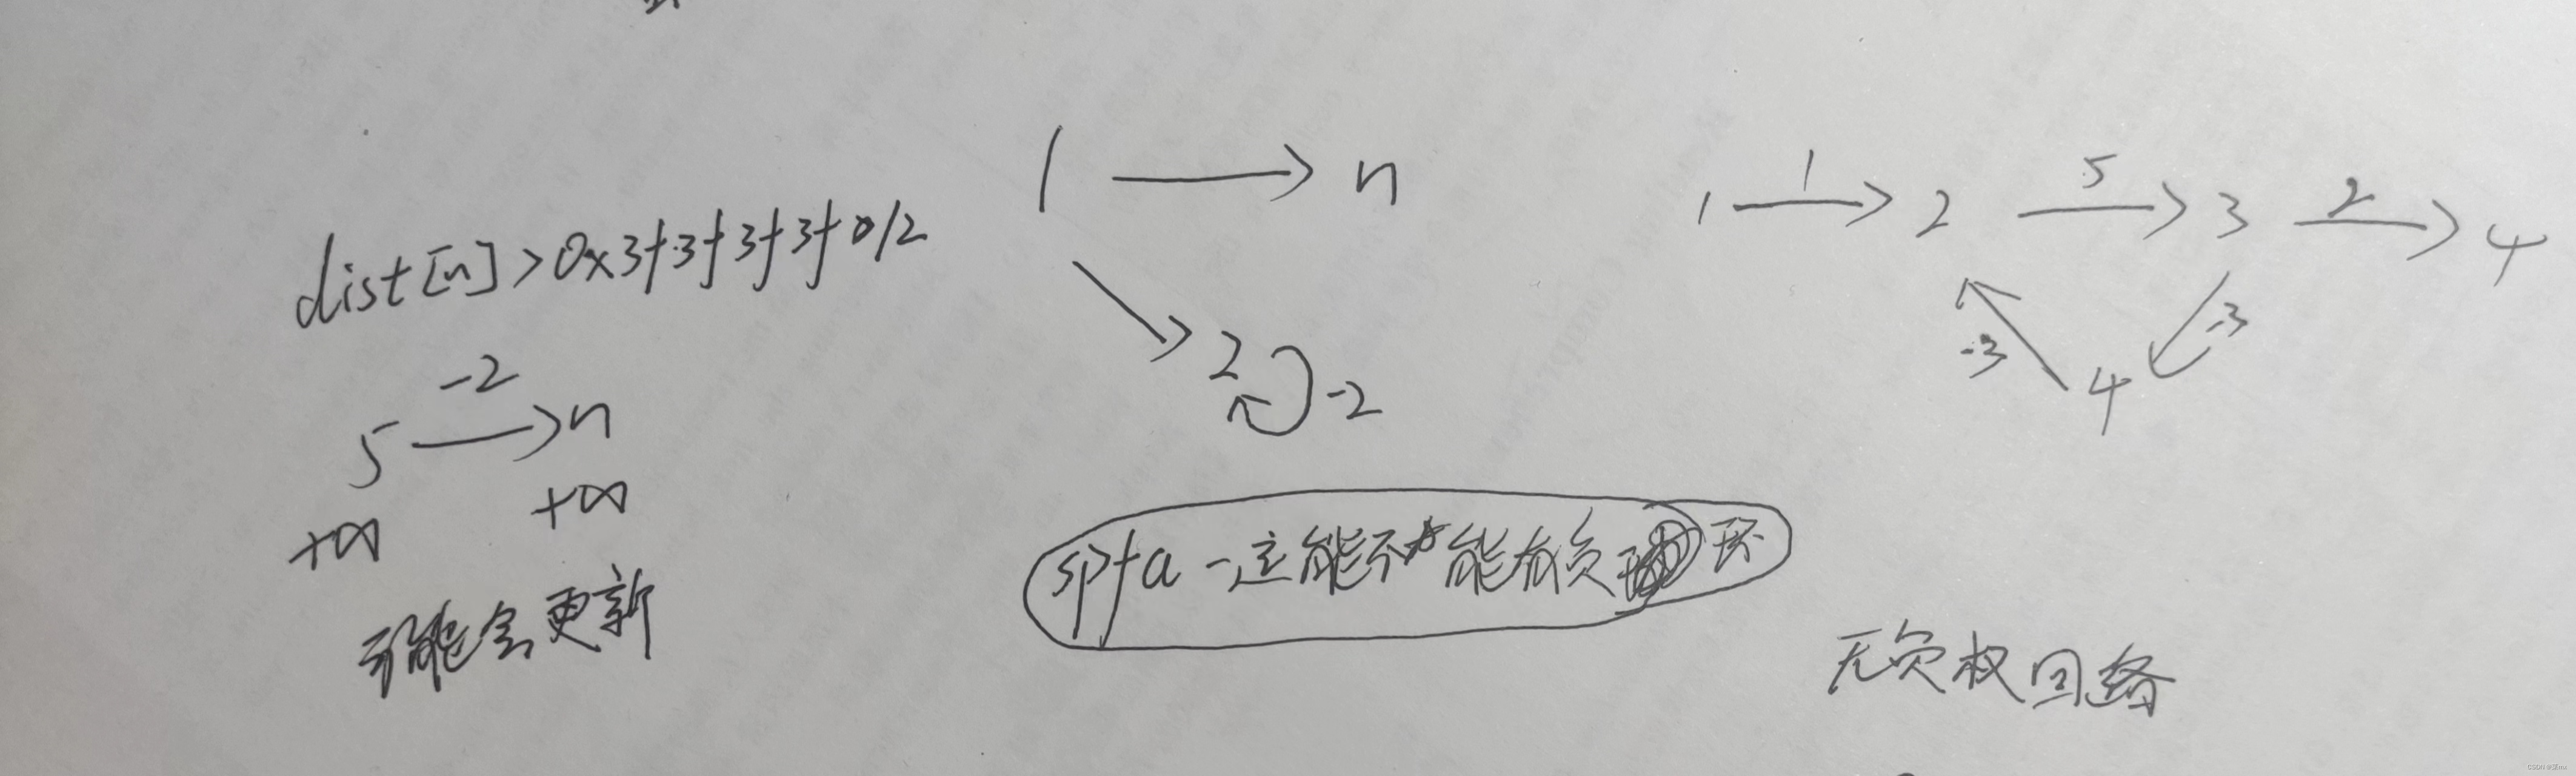 dist[n]>0x3f3f3f3f/2
-2
5 → n
+∞ +∞
可能会更新
1 → n
2
-2
spfa一定能不能有负环
1 → 2 → 3 → 4
1 5 2
-3 -3
4
无负权回路
CSDN